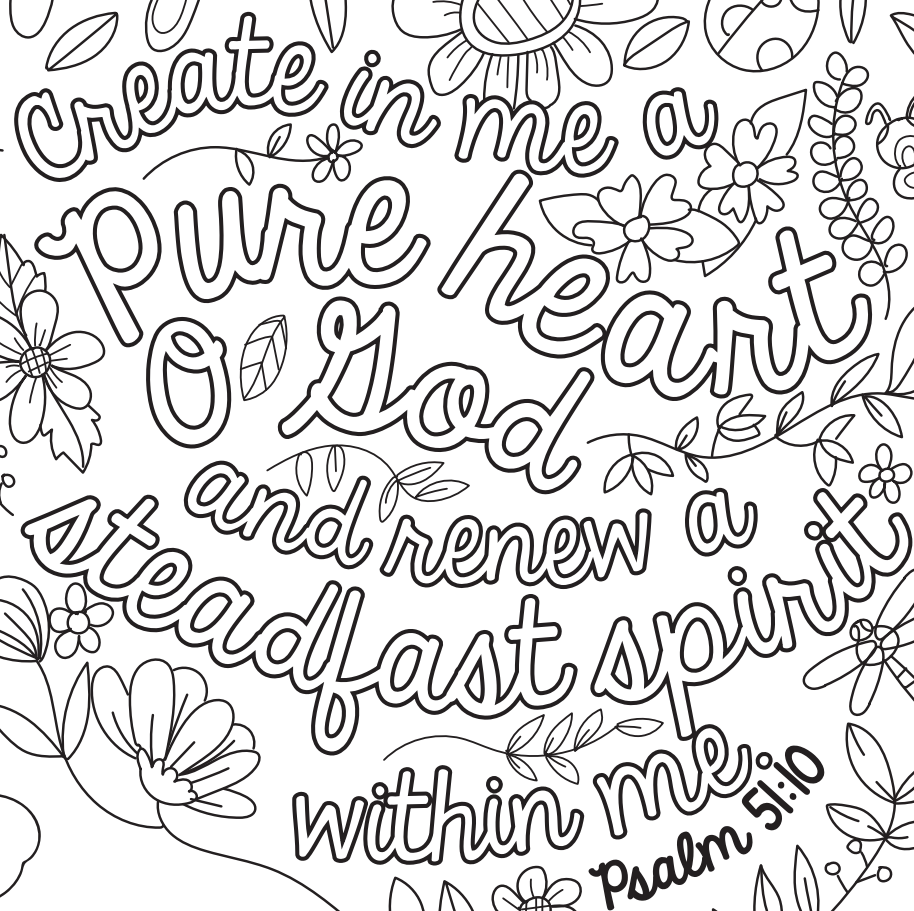 Create in me a
pure heart
O God
and renew a
steadfast spirit
within me.
Psalm 51:10